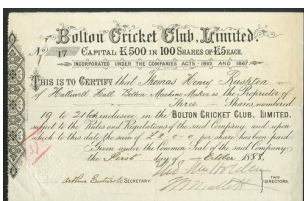 Bolton Cricket Club, Limited.
No 17 CAPITAL £500 IN 100 SHARES OF £5 EACH.
INCORPORATED UNDER THE COMPANIES ACTS - 1862 AND 1867
THIS IS TO CERTIFY that Thomas Henry Rushton
of Halliwell Hall Bolton Machine Maker is the Proprietor of
Three Shares, numbered
19 to 21 inclusive in the BOLTON CRICKET CLUB, LIMITED,
subject to the Rules and Regulations of the said Company, and upon
which to this date the sum of £2 per share has been paid
Given under the Common Seal of the said company
the First day of October 1888.
SECRETARY.
TWO DIRECTORS.